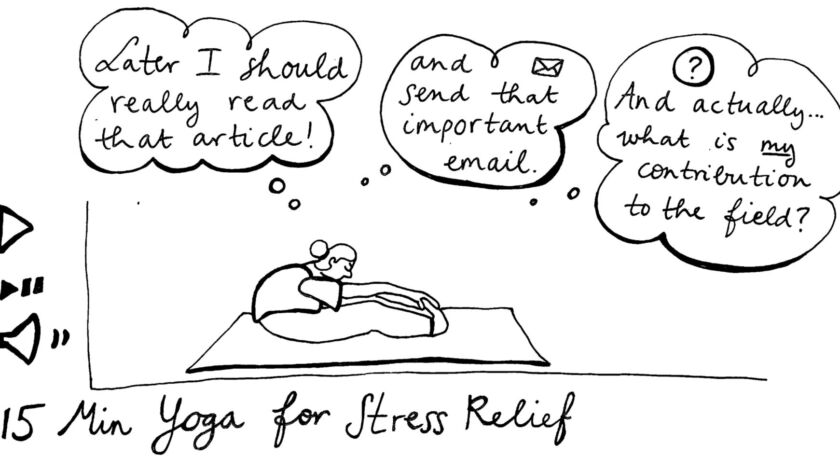 Later I should
really read
that article!
and
send that
important
email.
?
And actually...
what is my
contribution
to the field?
15 Min Yoga for Stress Relief